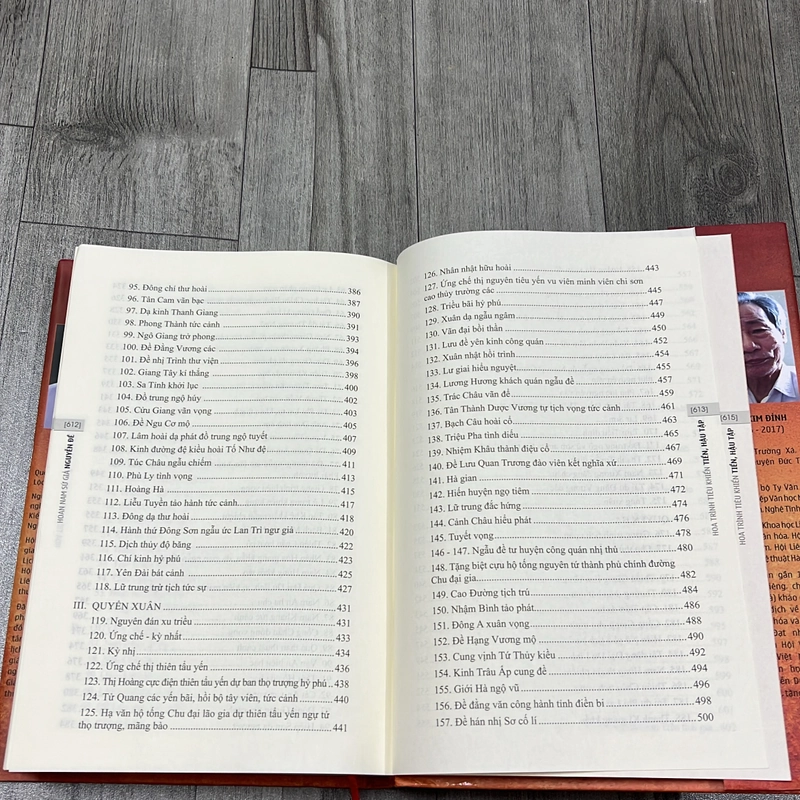 95. Đông chí thư hoài 386
96. Tân Cam vãn bạc 387
97. Dạ kinh Thanh Giang 390
98. Phong Thành tức cảnh 391
99. Ngô Giang trở phong 393
100. Đề Đằng Vương các 394
101. Đề nhị Trình thư viện 396
102. Giang Tây kí thắng 398
103. Sa Tỉnh khởi lục 400
104. Đồ trung ngộ hủy 402
105. Cửu Giang vãn vọng 403
106. Đề Ngu Cơ mộ 405
107. Lâm hoài dạ phát đồ trung ngộ tuyết 407
108. Kinh đường đệ kiều hoài Tố Như đệ 409
109. Túc Châu ngẫu chiếm 411
110. Phù Ly tình vọng 413
111. Hoàng Hà 415
112. Liễu Tuyền tảo hành tức cảnh 417
113. Đông dạ thư hoài 418
114. Hành thứ Đông Sơn ngẫu ức Lan Trì ngư giả 420
115. Dịch thủy độ băng 422
116. Chí kinh hỷ phú 423
117. Yên Đài bát cảnh 424
118. Lữ trung trừ tịch tức sự 427
III. QUYỂN XUÂN 431
119. Nguyên đán xu triều 431
120. Ứng chế - kỳ nhất 433
121. Kỳ nhị 434
122. Ứng chế thị thiên tẩu yến 436
123. Thị Hoàng cực điện thiên tẩu yến dự ban thọ trượng hỷ phú 438
124. Tứ Quang các yến bãi, hồi bộ tây viên, tức cảnh 440
125. Hạ văn hộ tổng Chu đại lão gia dự thiên tẩu yến ngự tứ
thọ trượng, mãng bào 441
[612]
HOAN NAM SỨ GIẢ NGUYỄN ĐỀ
126. Nhân nhật hữu hoài 443
127. Ứng chế thị nguyên tiêu yến vu viên minh viên chi sơn
cao thủy trường các 445
128. Triều bãi hỷ phú 447
129. Xuân dạ ngẫu ngâm 449
130. Vãn đại bồi thần 450
131. Lưu đề yên kinh công quán 452
132. Xuân nhật hồi trình 454
133. Lư giai hiểu nguyệt 455
134. Lương Hương khách quán ngẫu đề 457
135. Trác Châu vãn đề 459
136. Tân Thành Dược Vương tự tịch vọng tức cảnh 461
137. Bạch Câu hoài cổ 463
138. Triệu Pha tình diểu 465
139. Nhiệm Khâu thành điệu cổ 467
140. Đề Lưu Quan Trương đảo viên kết nghĩa xứ 469
141. Hà gian 471
142. Hiến huyện ngọ tiêm 472
143. Lữ trung đắc hứng 474
144. Cảnh Châu hiểu phát 476
145. Tuyết vọng 478
146 - 147. Ngẫu đề tư huyện công quán nhị thủ 480
148. Tặng biệt cựu hộ tống nguyên tứ thành phủ chính đường
Chu đại gia 482
149. Cao Đường tịch trú 484
150. Nhậm Bình tảo phát 486
151. Đông A xuân vọng 488
152. Đề Hạng Vương mộ 490
153. Cung vịnh Tứ Thủy kiều 492
154. Kinh Trâu Ấp cung đề 494
155. Giới Hà ngộ vũ 496
156. Đề đằng văn công hành tỉnh điền bi 498
157. Đề hán nhị Sơ cố lí 500
[613]
HOA TRÌNH TIÊU KHIỂN TIỀN, HẬU TẬP
[615]
HOA TRÌNH TIÊU KHIỂN TIỀN, HẬU TẬP
KIM ĐỈNH
- 2017)